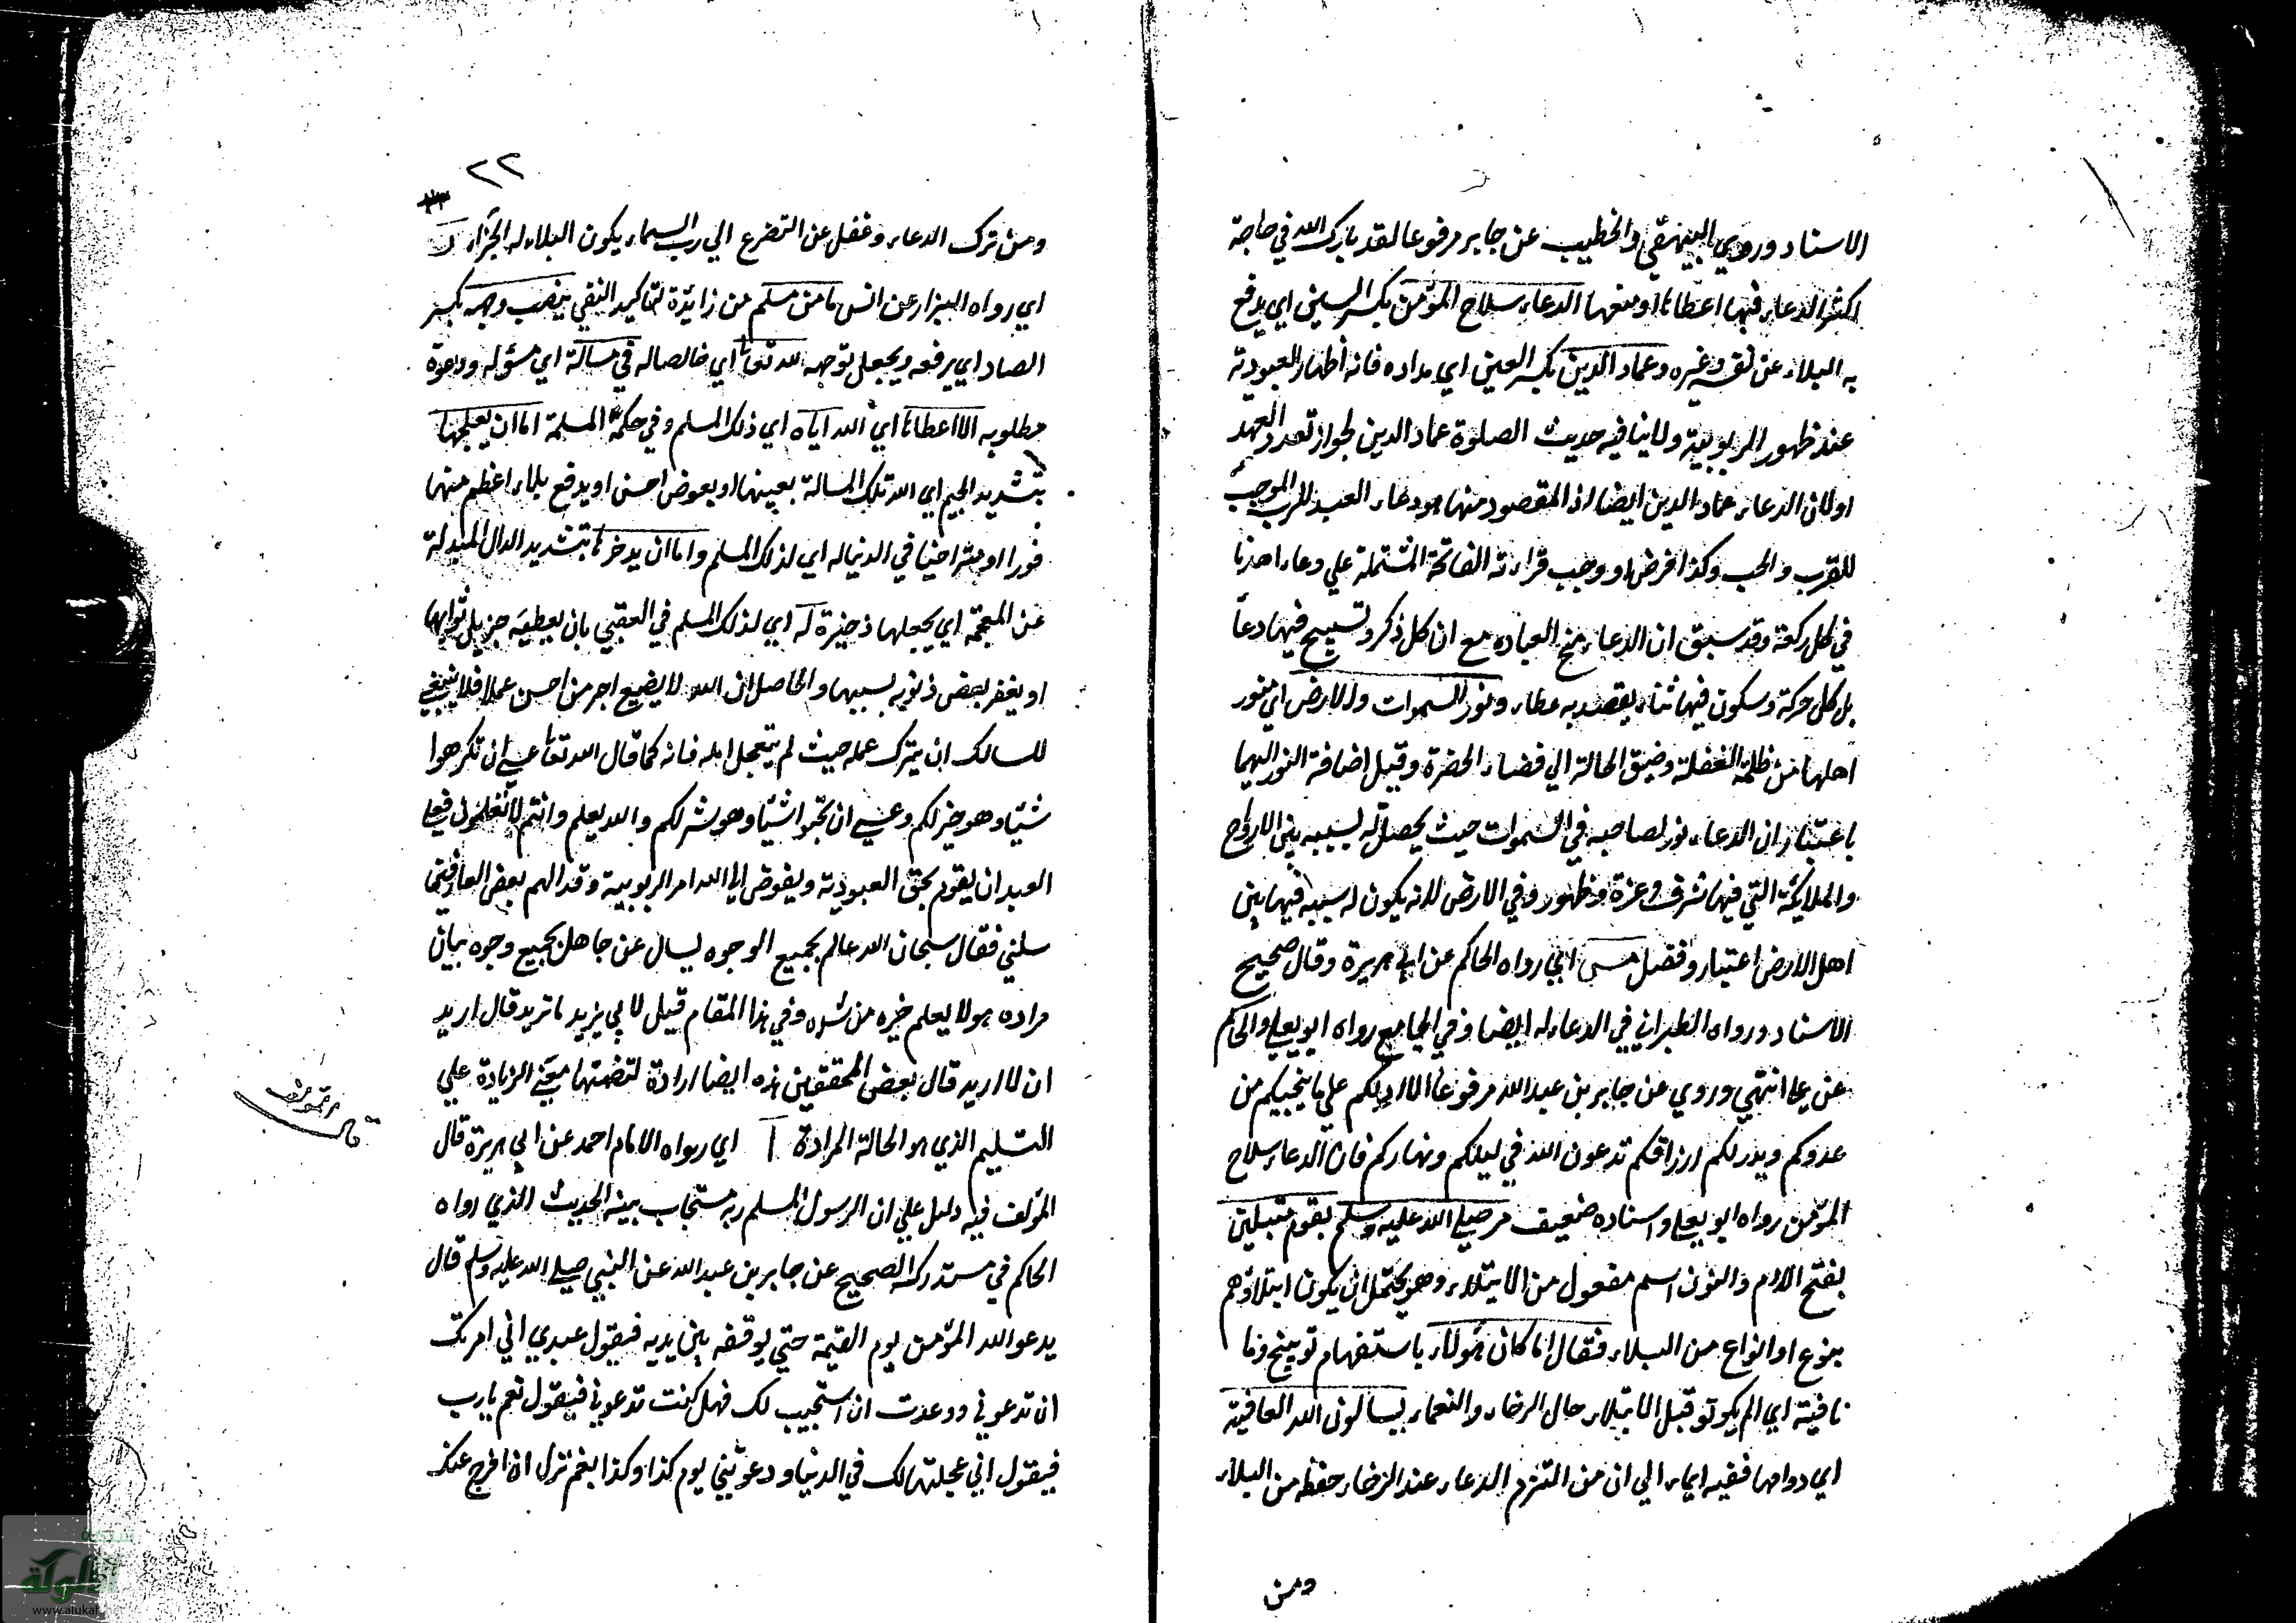 الاسناد وروي البيهقي والخطيب عن جابر مرفوعا لقد بارك الله في حاجة
اكثر الدعاء فيها اعطاها او منعها الدعاء سلاح المؤمن بكسر السين اي يدفع
به البلاء عن نفسه وغيره وعماد الدين بكسر العين اي مداره فانه اظهار العبودية
عند ظهور الربوبية ولا ينافيه حديث الصلوة عماد الدين لجواز تعدد العمد
او لان الدعاء عماد الدين ايضا اذ المقصود منها هو دعاء العبد للرب الموجب
للقرب والحب وكذا فرض او وجب قراءة الفاتحة المشتملة علي دعاء اهدنا
في كل ركعة وقد سبق ان الدعاء مخ العبادة مع ان كل ذكر وتسبيح فيها دعاء
بل كل حركة وسكون فيها ثناء يقصد به عطاء ونور السموات والارض اي منور
اهلها من ظلمة الغفلة وضيق الحالة الي فضاء الحضرة وقيل اضافة النور اليهما
باعتبار ان الدعاء نور لصاحبه في السموات حيث يحصل له بسببه بين الارواح
والملائكة التي فيها شرف وعزة وظهور وفي الارض لانه يكون له سببه فيها بين
اهل الارض اعتبار وفضل مس اي رواه الحاكم عن ابي هريرة وقال صحيح
الاسناد ورواه الطبراني في الدعاء له ايضا وفي الجامع رواه ابو يعلي والحاكم
عن علي انتهي وروي عن جابر بن عبد الله مرفوعا الا ادلكم علي ما ينجيكم من
عدوكم ويدر لكم ارزاقكم تدعون الله في ليلكم ونهاركم فان الدعاء سلاح
المؤمن رواه ابو يعلي واسناده ضعيف مر صلي الله عليه وسلم بقوم مبتلين
بفتح اللام والنون اسم مفعول من الابتلاء وهو يحتمل ان يكون ابتلاؤهم
بنوع او انواع من البلاء فقال اما كان هؤلاء باستفهام توبيخ وما
نافية اي الم يكونوا قبل الابتلاء حال الرخاء والنعماء يسالون الله العافية
اي دوامها ففيه ايماء الي ان من التزم الدعاء عند الرخاء حفظ من البلاء
ومن
٢٢
ومن ترك الدعاء وغفل عن التضرع الي رب السماء يكون البلاء له الجزاء ر
اي رواه البزار عن انس ما من مسلم من زائدة لتاكيد النفي ينصب وجهه بكسر
الصاد اي يرفعه ويجعل توجهه لله تعالي اي خالصا له في مسالة اي مسؤله ودعوة
مطلوبه الا اعطاها اي الله اياه اي ذلك المسلم وفي حكمه المسلمة اما ان يعجلها
بتشديد الجيم اي الله تلك المسالة بعينها او بعوض احسن او يدفع بلاء اعظم منها
فورا او متراخيا في الدنيا له اي لذلك المسلم واما ان يدخرها بتشديد الدال المبدلة
عن المعجمة اي يجعلها ذخيرة له اي لذلك المسلم في العقبي بان يعطيه جزيل ثوابها
او يغفر بعض ذنوبه بسببها والحاصل ان الله لا يضيع اجر من احسن عملا فلا ينبغي
للسالك ان يترك عمله حيث لم يتعجل امله فانه كما قال الله تعالي عسي ان تكرهوا
شيئا وهو خير لكم وعسي ان تحبوا شيئا وهو شر لكم والله يعلم وانتم لا تعلمون فعلي
العبد ان يقوم بحق العبودية ويفوض الي الله امر الربوبية وقد الهم بعض العارفين
سلني فقال سبحان الله عالم بجميع الوجوه يسال عن جاهل بجميع وجوه بيان
مراده هو لا يعلم خيره من شره وفي هذا المقام قيل لابي يزيد ما تريد قال اريد
ان لا اريد قال بعض المحققين هذه ايضا ارادة لتضمنها معني الزيادة علي
التسليم الذي هو الحالة المرادة أ اي رواه الامام احمد عن ابي هريرة قال
المؤلف فيه دليل علي ان الرسول المسلم ربه مستجاب بينه الحديث الذي رواه
الحاكم في مستدركه الصحيح عن جابر بن عبد الله عن النبي صلي الله عليه وسلم قال
يدعو الله المؤمن يوم القيمة حتي يوقفه بين يديه فيقول عبدي اني امرتك
ان تدعوني ووعدت ان استجيب لك فهل كنت تدعوني فيقول نعم يا رب
فيقول اني عجلتها لك في الدنيا ودعوتني يوم كذا وكذا لغم نزل ان افرج عنك
شبكة
الألوكة
www.alukah.net